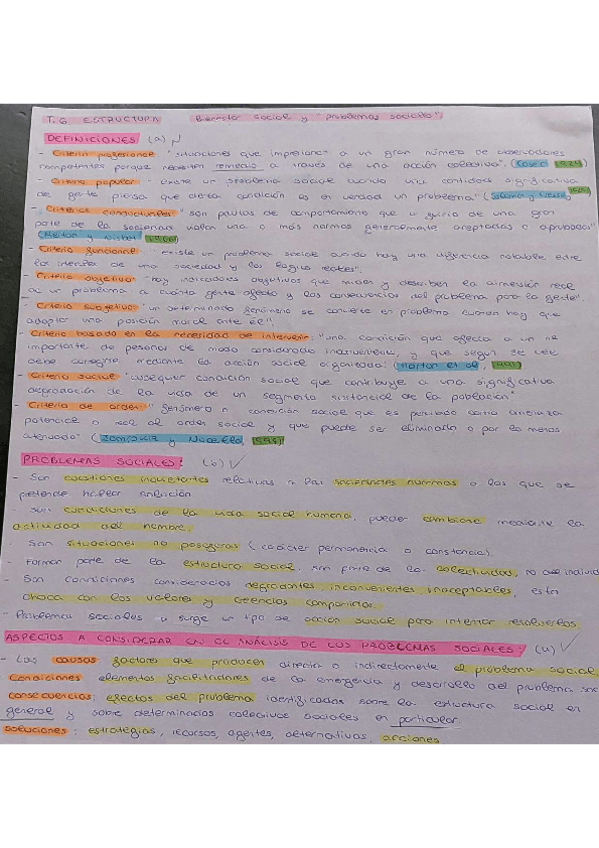 T.6 ESTRUCTURA Bienestar social y "problemas sociales".
DEFINICIONES (a)
- Criterio profesional: "situaciones que impresionan a un gran número de observadores
competentes porque necesitan remedio a través de una acción colectiva". (Case, 1924)
- Criterio popular: "existe un problema social cuando una cantidad significativa
de gente piensa que cierta condición es en verdad un problema" (
- Criterios conductuales: "son pautas de comportamiento que a juicio de una gran
parte de la sociedad violan una o más normas generalmente aceptadas o aprobadas"
(Merton y Nisbet
- Criterio funcional: "existe un problema social cuando hay una diferencia notable entre
los ideales de una sociedad y los logros reales".
- Criterio objetivo: "hay indicadores objetivos que miden y describen la dimensión real
de un problema a cuánta gente afecta y las consecuencias del problema para la gente".
- Criterio subjetivo: "un determinado fenómeno se convierte en problema cuando hay que
adoptar una posición moral ante él".
- Criterio basado en la necesidad de intervenir: "una condición que afecta a un nº
importante de personas de modo considerado inconveniente, y que según se cree
debe corregirse mediante la acción social organizada" (Horton et al, 1991)
- Criterio social: "cualquier condición social que contribuye a una significativa
degradación de la vida de un segmento sustancial de la población"
- Criterio de orden: "fenómeno o condición social que es percibido como amenaza
potencial o real al orden social y que puede ser eliminado o por lo menos
atenuado" (
PROBLEMAS SOCIALES: (b)
- Son cuestiones inquietantes relativas a las sociedades humanas a las que se
pretende hallar solución.
- Son condiciones de la vida social humana, pueden cambiarse mediante la
actividad del hombre.
- Son situaciones no pasajeras (carácter permanencia o constancia).
- Forman parte de la estructura social, son fruto de la colectividad, no del individ
- Son condiciones consideradas degradantes, inconvenientes, inaceptables, esto
choca con los valores y creencias compartidos.
- Problemas sociales surge un tipo de acción social para intentar resolverlos
ASPECTOS A CONSIDERAR EN EL ANÁLISIS DE LOS PROBLEMAS SOCIALES: (a)
- Las causas factores que producen directa o indirectamente el problema social
Condiciones elementos facilitadores de la emergencia y desarrollo del problema soc
consecuencias: efectos del problema identificadas sobre la estructura social en
general y sobre determinados colectivos sociales en particular
soluciones: estrategias, recursos, agentes, alternativas, acciones